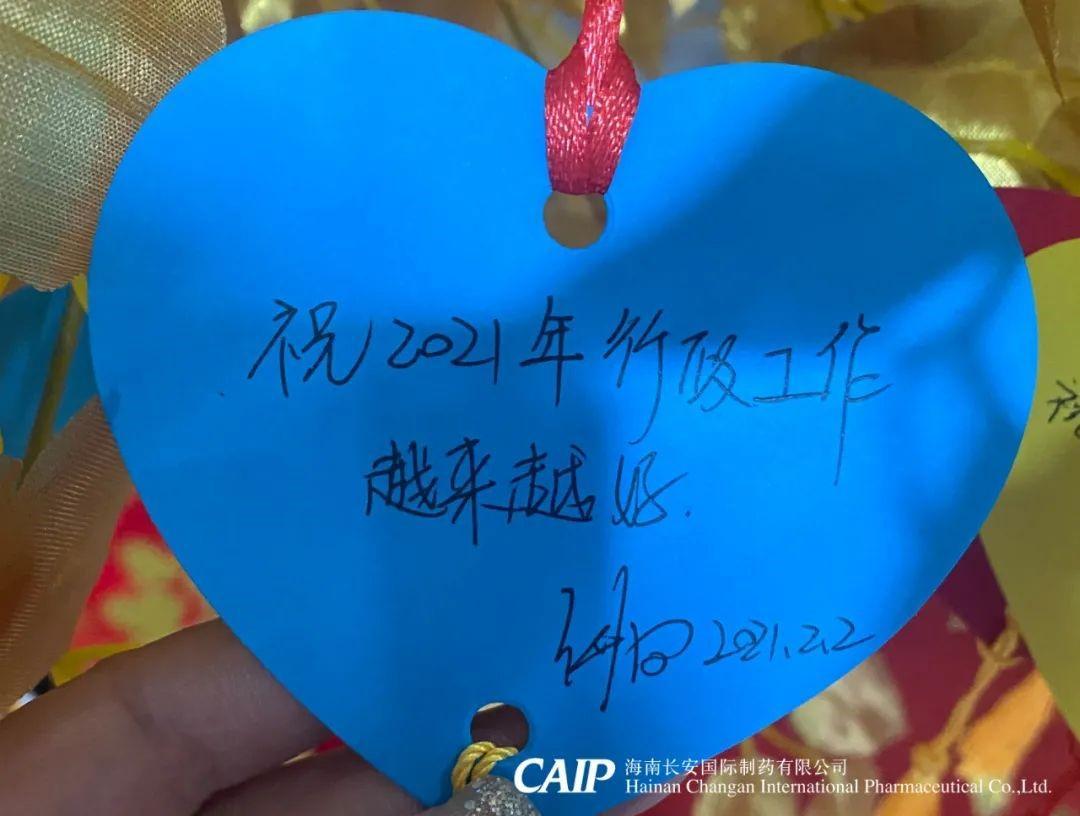 祝2021年行政工作
越来越好.
2021.2.2
CAIP 海南长安国际制药有限公司
Hainan Changan International Pharmaceutical Co.,Ltd.